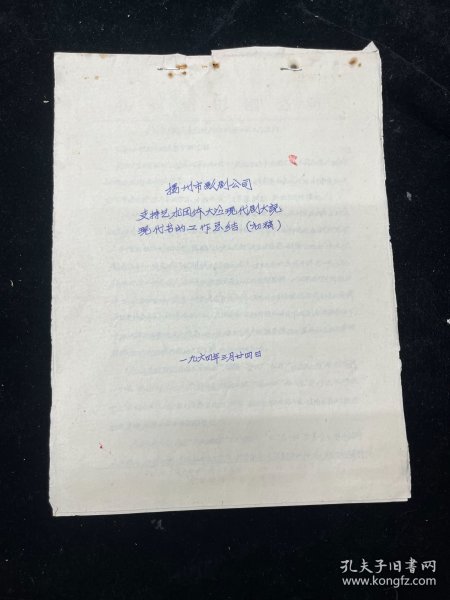 扬州市影剧公司
支持艺术团体大演现代剧大说
现代书的工作总结（初稿）
一九六四年三月廿四日
孔夫子旧书网
www.kongfz.com